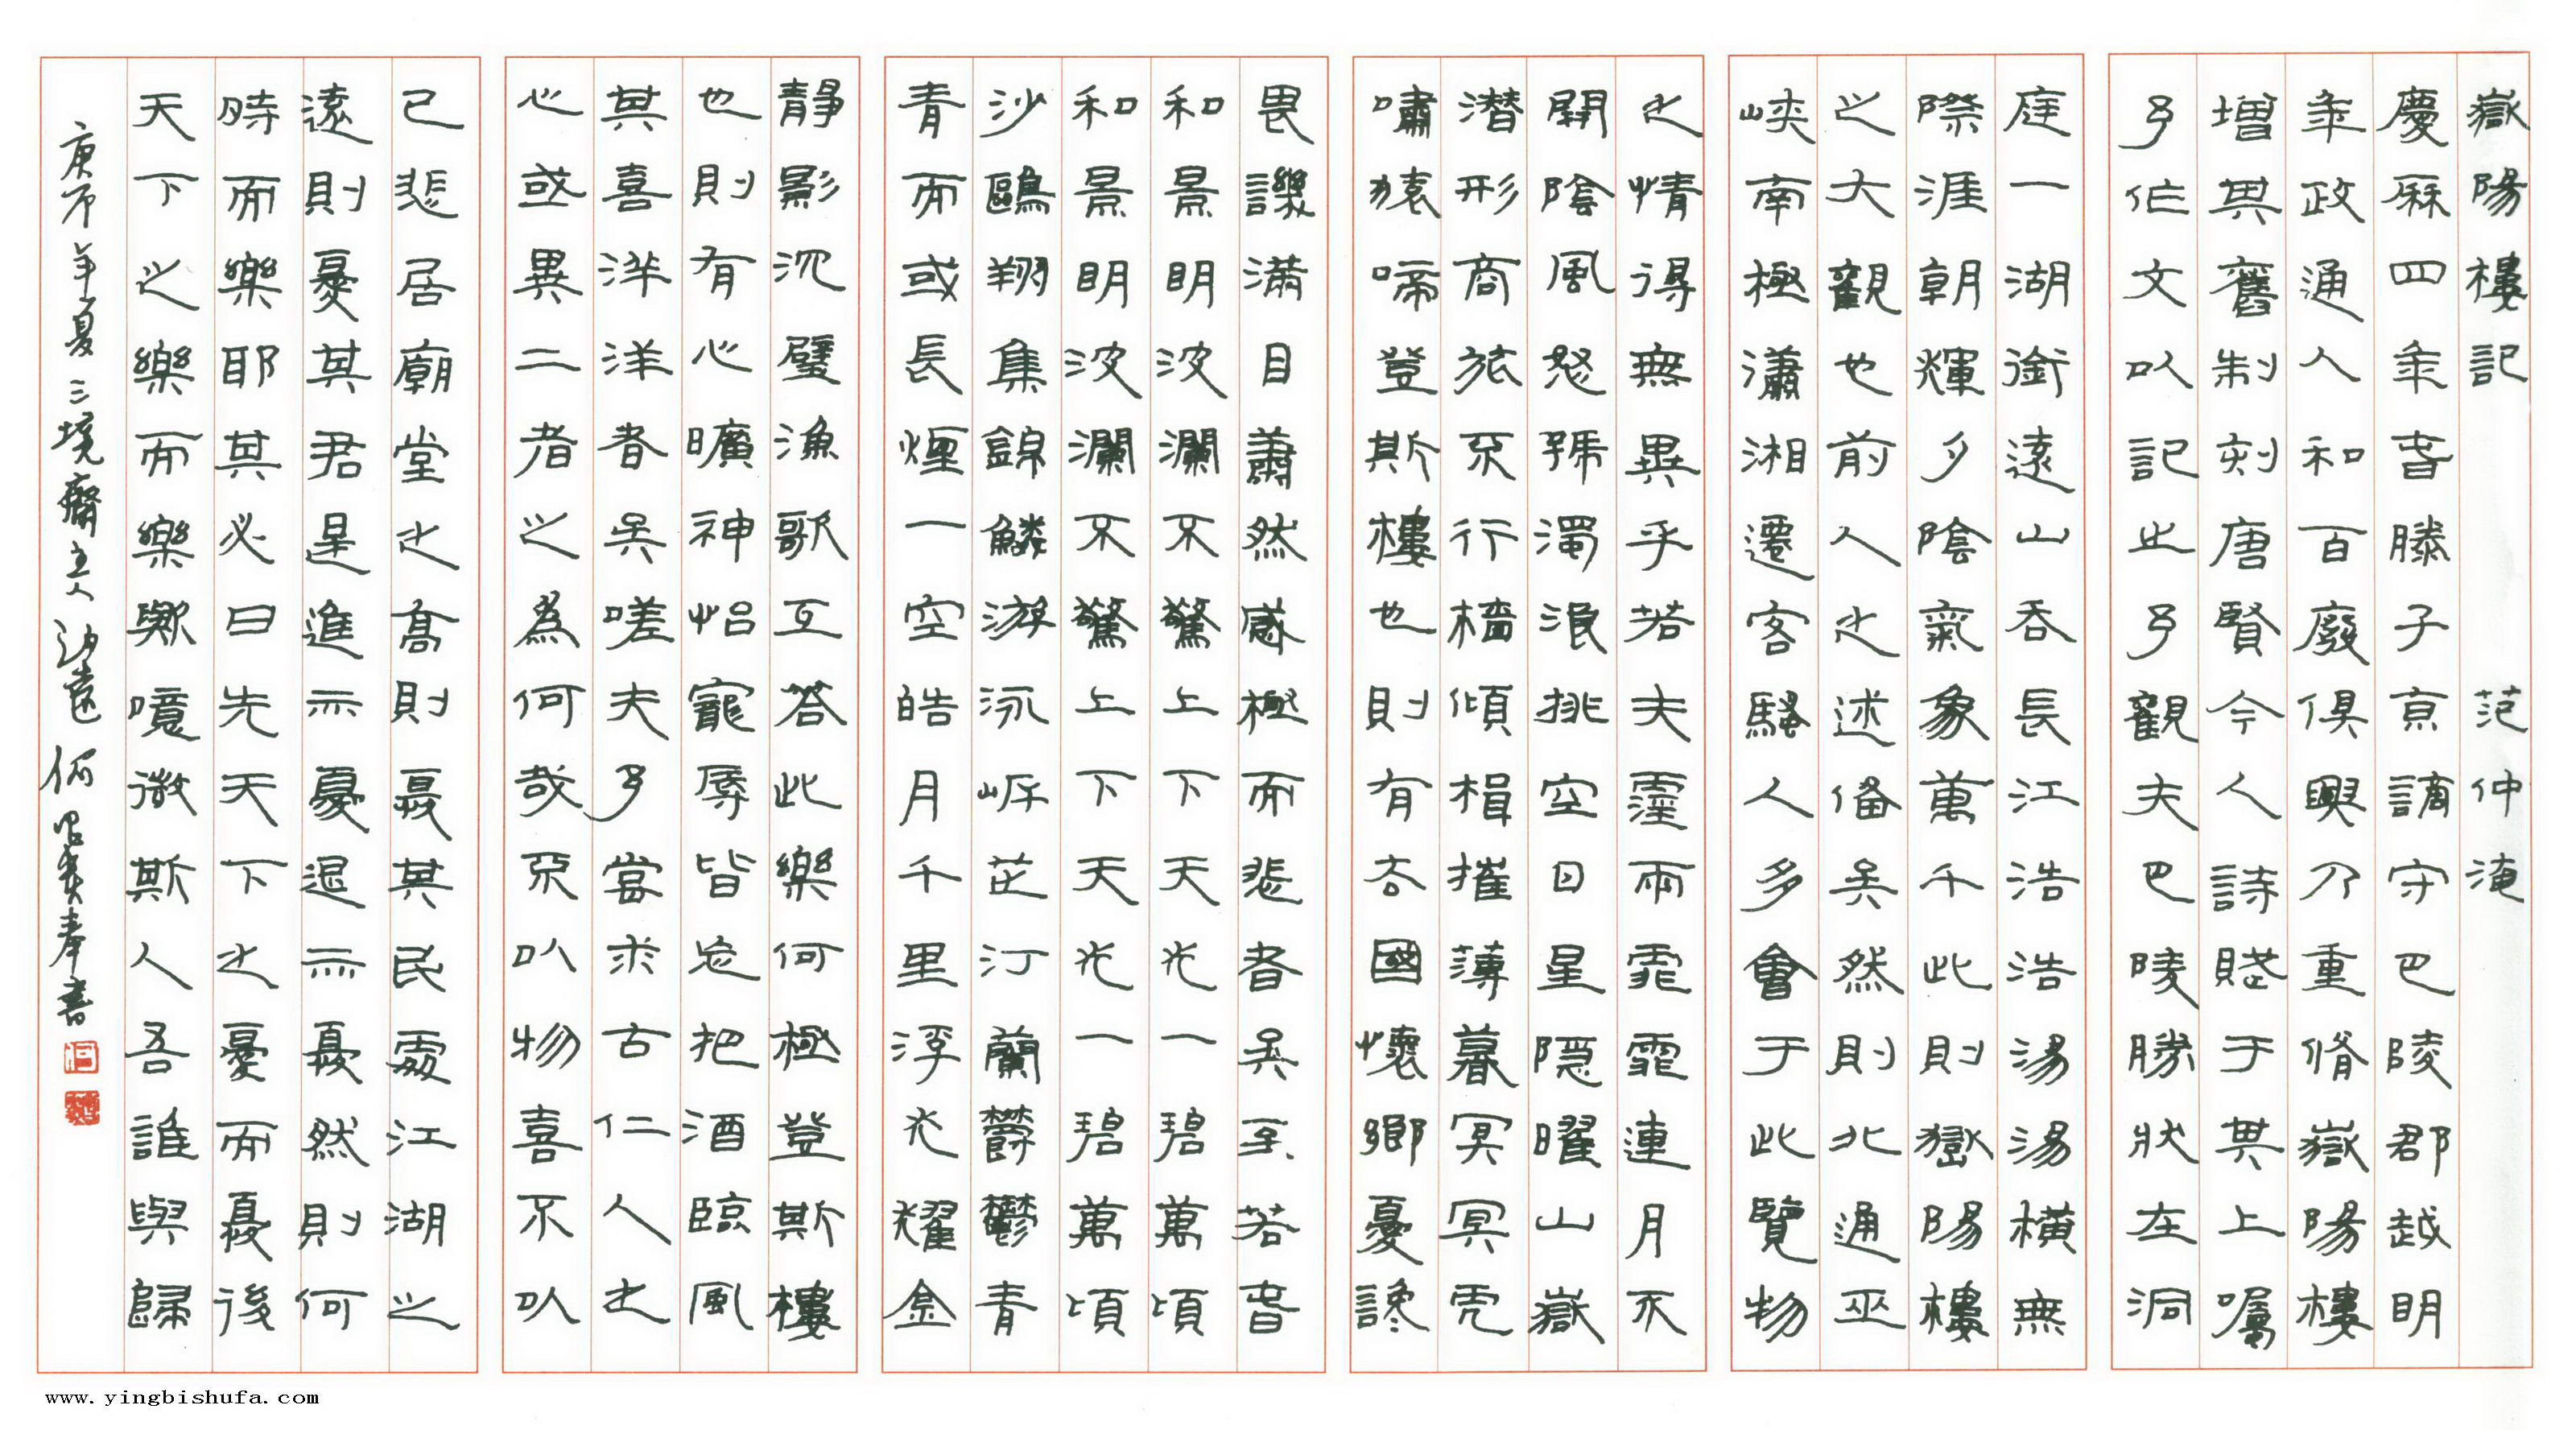 嶽陽樓記 范仲淹
慶厤四年春滕子京謫守巴陵郡越明
年政通人和百廢俱興乃重脩嶽陽樓
增其舊制刻唐賢今人詩賦于其上囑
予作文以記之予觀夫巴陵勝狀在洞
庭一湖銜遠山吞長江浩浩湯湯橫無
際涯朝輝夕陰氣象萬千此則嶽陽樓
之大觀也前人之述備矣然則北通巫
峽南極瀟湘遷客騷人多會于此覽物
之情得無異乎若夫霪雨霏霏連月不
開陰風怒號濁浪排空日星隱曜山嶽
潛形商旅不行檣傾楫摧薄暮冥冥虎
嘯猿啼登斯樓也則有去國懷鄉憂讒
畏譏滿目蕭然感極而悲者矣至若春
和景明波瀾不驚上下天光一碧萬頃
和景明波瀾不驚上下天光一碧萬頃
沙鷗翔集錦鱗游泳岸芷汀蘭鬱鬱青
青而或長煙一空皓月千里浮光耀金
靜影沉璧漁歌互答此樂何極登斯樓
也則有心曠神怡寵辱皆忘把酒臨風
其喜洋洋者矣嗟夫予嘗求古仁人之
心或異二者之為何哉不以物喜不以
己悲居廟堂之高則憂其民處江湖之
遠則憂其君是進亦憂退亦憂然則何
時而樂耶其必曰先天下之憂而憂後
天下之樂而樂歟噫微斯人吾誰與歸
年夏三境齋主人 何 奉書
www.yingbishufa.com